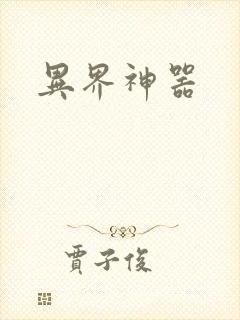 異界神器
賈子俊